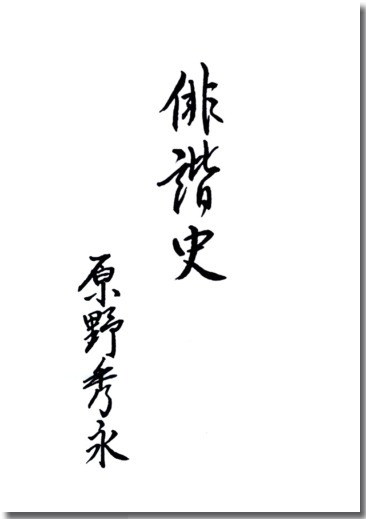 俳諧史
原野秀永